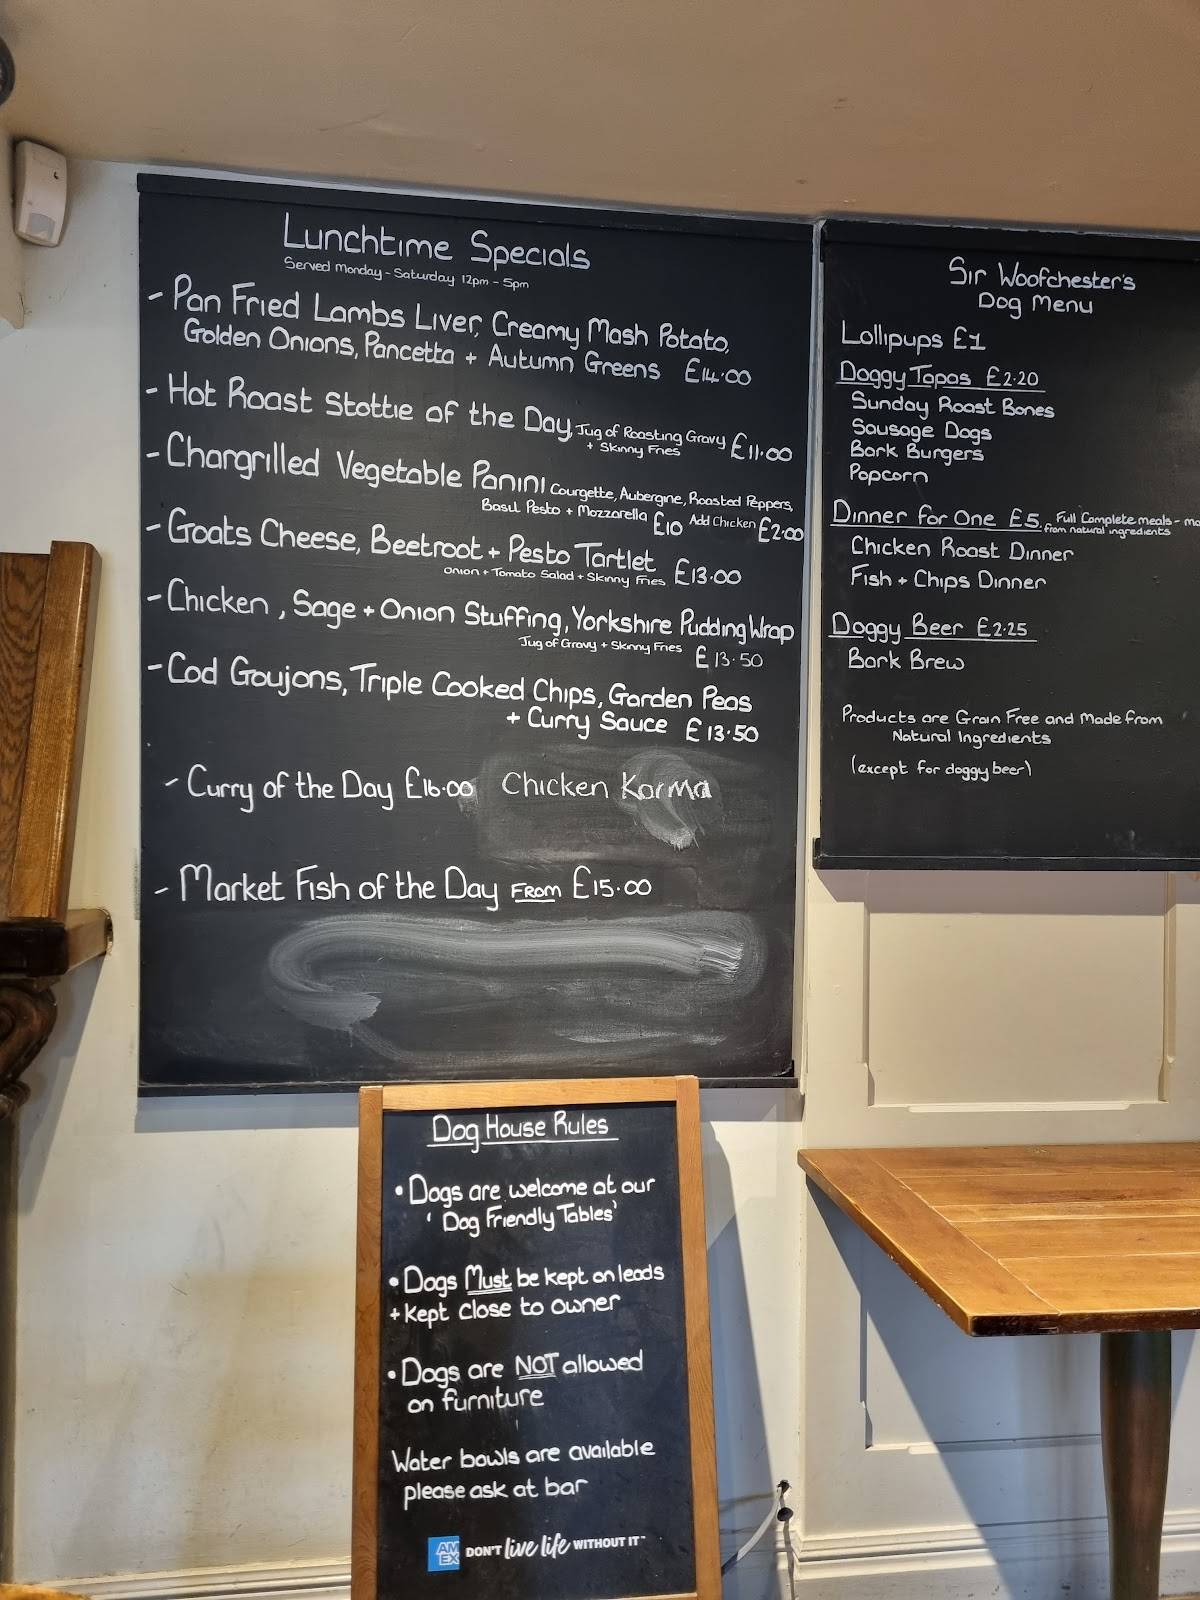 Lunchtime Specials
Served Monday - Saturday 12pm - 5pm
- Pan Fried Lambs Liver, Creamy Mash Potato,
Golden Onions, Pancetta + Autumn Greens £14.00
- Hot Roast Stottie of the Day, Jug of Roasting Gravy £11.00
+ Skinny Fries
- Chargrilled Vegetable Panini Courgette, Aubergine, Roasted Peppers,
Basil Pesto + Mozzarella £10 Add Chicken £2.00
- Goats Cheese, Beetroot + Pesto Tartlet £13.00
Onion + Tomato Salad + Skinny Fries
- Chicken, Sage + Onion Stuffing, Yorkshire Pudding Wrap
Jug of Gravy + Skinny Fries £13.50
- Cod Goujons, Triple Cooked Chips, Garden Peas
+ Curry Sauce £13.50
- Curry of the Day £16.00 Chicken Korma
- Market Fish of the Day From £15.00
Sir Woofchester's
Dog Menu
Lollipups £1
Doggy Tapas £2.20
Sunday Roast Bones
Sausage Dogs
Bark Burgers
Popcorn
Dinner for One £5. Full Complete meals -
from natural ingredients
Chicken Roast Dinner
Fish + Chips Dinner
Doggy Beer £2.25
Bark Brew
Products are Grain Free and Made from
Natural Ingredients
(except for doggy beer)
Dog House Rules
• Dogs are welcome at our
'Dog Friendly Tables'
• Dogs Must be kept on leads
+ kept close to owner
• Dogs are NOT allowed
on furniture
Water bowls are available
please ask at bar
AM
EX DON'T live life WITHOUT IT™